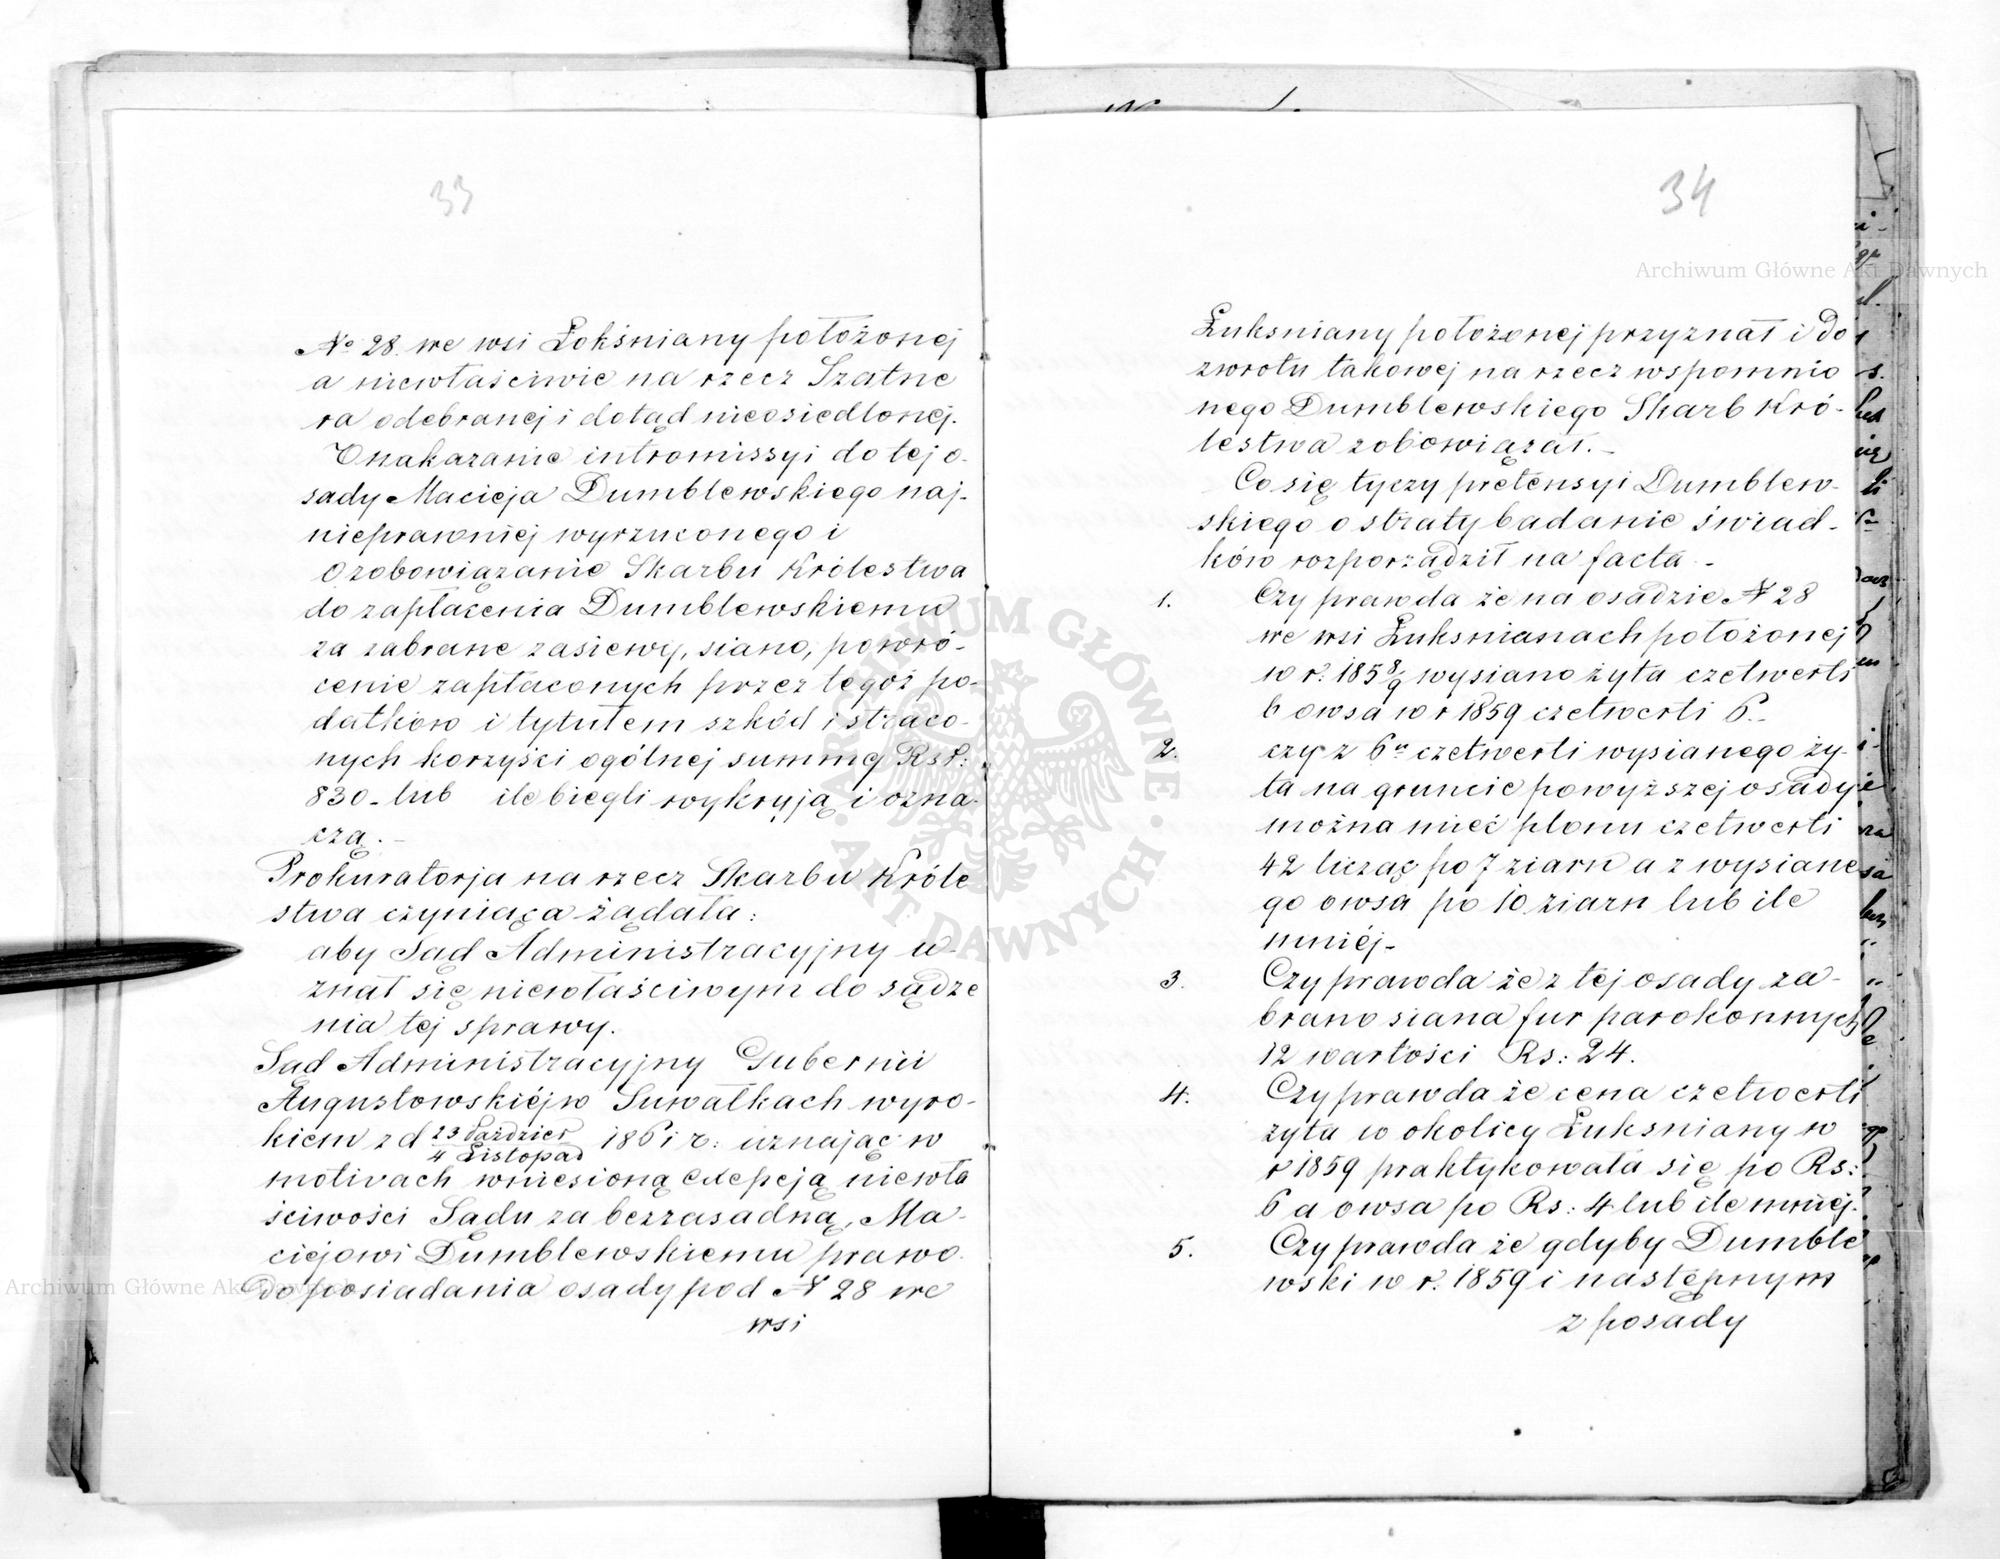 33
№ 28. we wsi Łokśniany położonej
a niewłaściwie na rzecz Szatne
ra odebranej i dotąd nieosiedlonej.
O nakazanie intromissyi do tej o-
sady Macieja Dumblewskiego naj-
nieprawniej wyrzuconego i
O zobowiązanie Skarbu Królestwa
do zapłacenia Dumblewskiemu
za zabrane zasiewy, siano, powró-
cenie zapłaconych przez tegoż po-
datków i tytułem szkód i straco-
nych korzyści ogólnej summy Rsr:
830 - lub ile biegli wykryją i ozna-
czą. -
Prokuratorja na rzecz Skarbu Króle
stwa czyniąca żądała:
aby Sąd Administracyjny u-
znał się niewłaściwym do sądze
nia tej sprawy.
Sąd Administracyjny Gubernii
Augustowskiéj w Suwałkach wyro-
kiem z d 23 Paździer / 4 Listopad 1861 r: uznając w
motivach wniesioną excepcją niewła
ściwości Sądu za bezzasadną, Ma-
ciejowi Dumblewskiemu prawo
do posiadania osady pod № 28 we
wsi
34
Łuksniany położonej przyznał i do
zwrotu takowej na rzecz wspomnio
nego Dumblewskiego Skarb Kró-
lestwa zobowiązał. -
Co się tyczy pretensyi Dumblew-
skiego o straty badanie świad-
ków rozporządził na facta. -
1. Czy prawda że na osadzie № 28
we wsi Łuksnianach położonej
w r. 1858/9 wysiano żyta czetwerti
6 owsa w r 1859 czetwerti 6. -
2. czy z 6u czetwerti wysianego ży-
ta na gruncie powyższej osady
można mieć plonu czetwerti
42 licząc po 7 ziarn a z wysiane
go owsa po 10 ziarn lub ile
mniéj. -
3. Czy prawda że z tej osady za-
brano siana fur parokonnych
12 wartości Rs: 24.
4. Czy prawda że cena czetwerti
żyta w okolicy Łuksniany w
r 1859 praktykowała się po Rs:
6 a owsa po Rs: 4 lub ile mniéj.
5. Czy prawda że gdyby Dumble
wski w r. 1859 i następnym
z posady
Archiwum Główne Akt Dawnych
Archiwum Główne Akt Dawnych
ARCHIWUM GŁÓWNE · AKT DAWNYCH ·